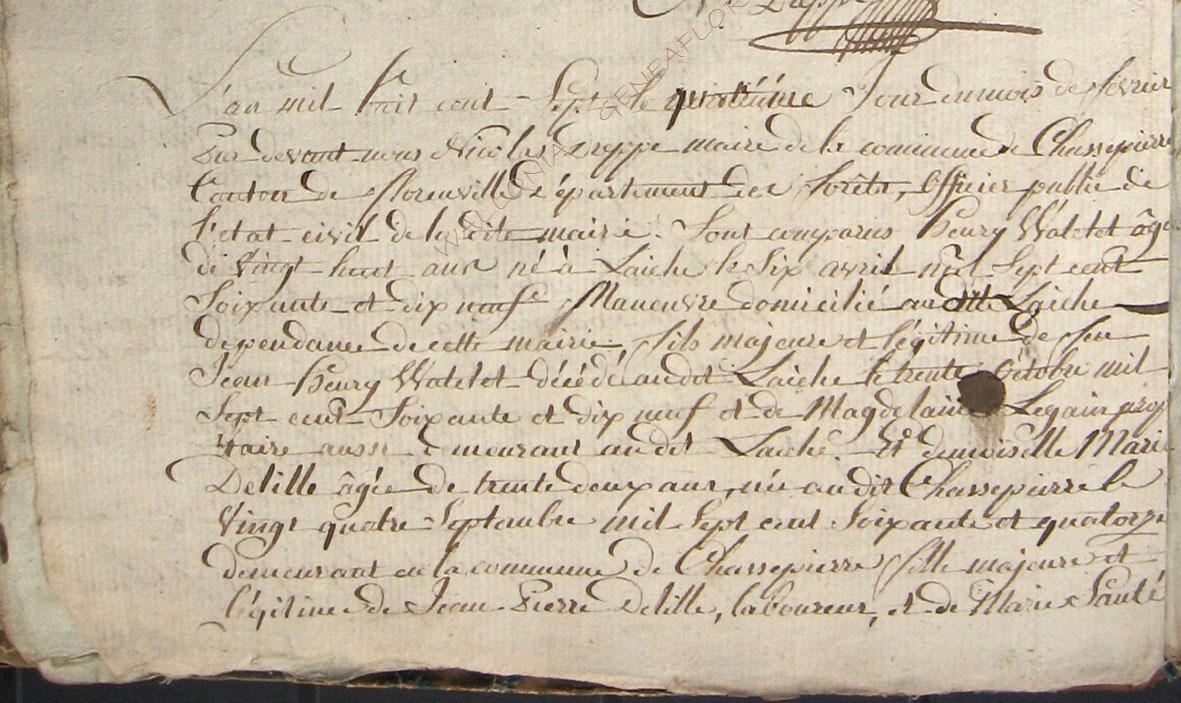 Dreppe
L'an mil huit cent Sept le quatrième Jour du mois de fevrier
Par devant nous Nicolas Dreppe maire de la commune de Chassepierre
Canton de florenville Département des forêts, officier public de
l'etat civil de la dite mairie. Sont comparus henry Watelet âgé
de Vingt huit ans né à Laiche le Six avril mil Sept cent
Soixante et dix neuf Maneuvre domicilié au dit Laiche
dependance de cette mairie fils majeure et légitime de feu
Jean henry Watelet décédé audit Laiche le trente octobre mil
Sept cent Soixante et dix neuf et de Magdelaine Legain prop
taire aussi demeurant audit Laiche. Et demoiselle Marie
Delille âgée de trente deux ans, née audit Chassepierre le
Vingt quatre Septembre mil Sept cent Soixante et quatorze
demeurant en la commune de Chassepierre fille majeure et
légitime de Jean Pierre Delille, laboureur, et de Marie Santé